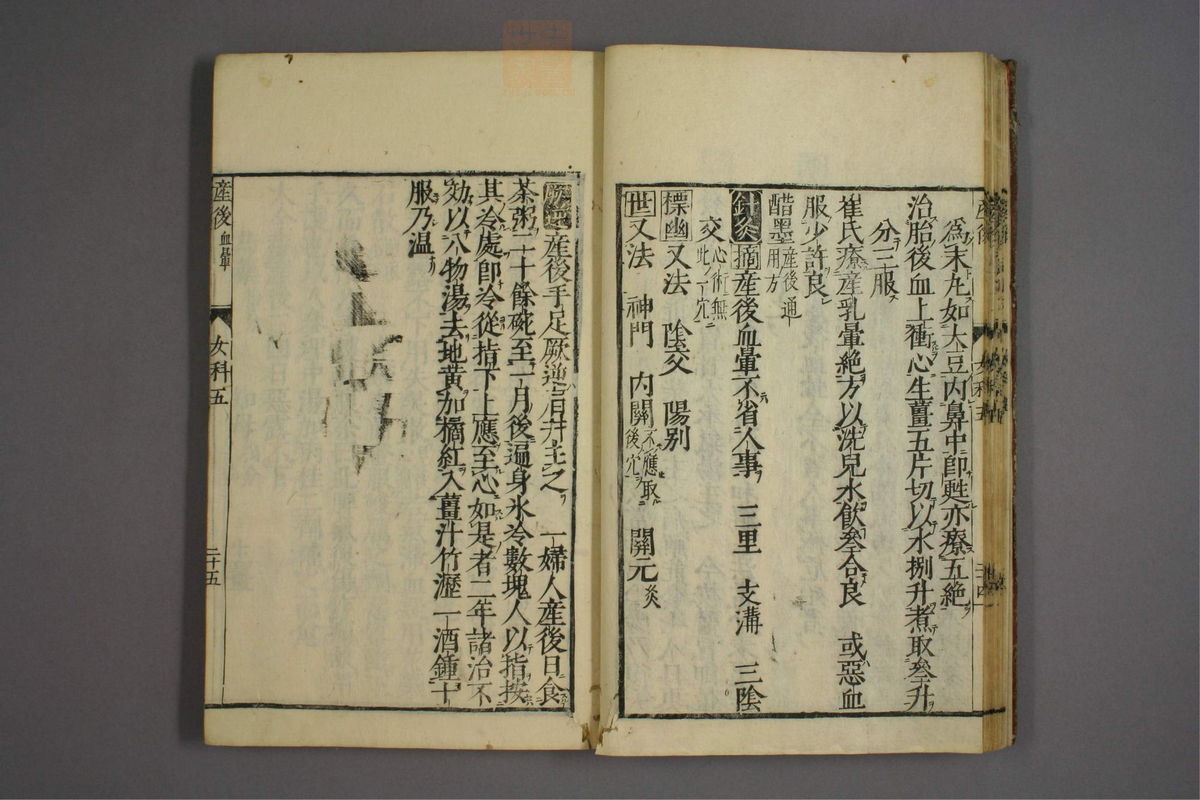 為末丸如大豆内鼻中即甦亦療五絶
治胎後血上衝心生薑五片切以水捌升煮取叄升
分三服
崔氏療産乳暈絶方以洗兒水飲叄合良 或惡血
服少許良
醋墨産後通用方
針灸摘産後血暈不省人事 三里 支溝 三陰
交心術無此ノ一穴ニ
標幽又法 陰交 陽別
世又法 神門 内關不應取後穴 關元灸
産後手足厥逆此井主之 一婦人産後日食
茶粥二十餘碗至一月後遍身氷冷數塊人以指按
其冷處即冷從指下上應至心如是者二年諸治不
効以八物湯去地黄加橘紅入薑汁竹瀝一酒鍾十
服乃温
産後 血暈
女科五
二十五